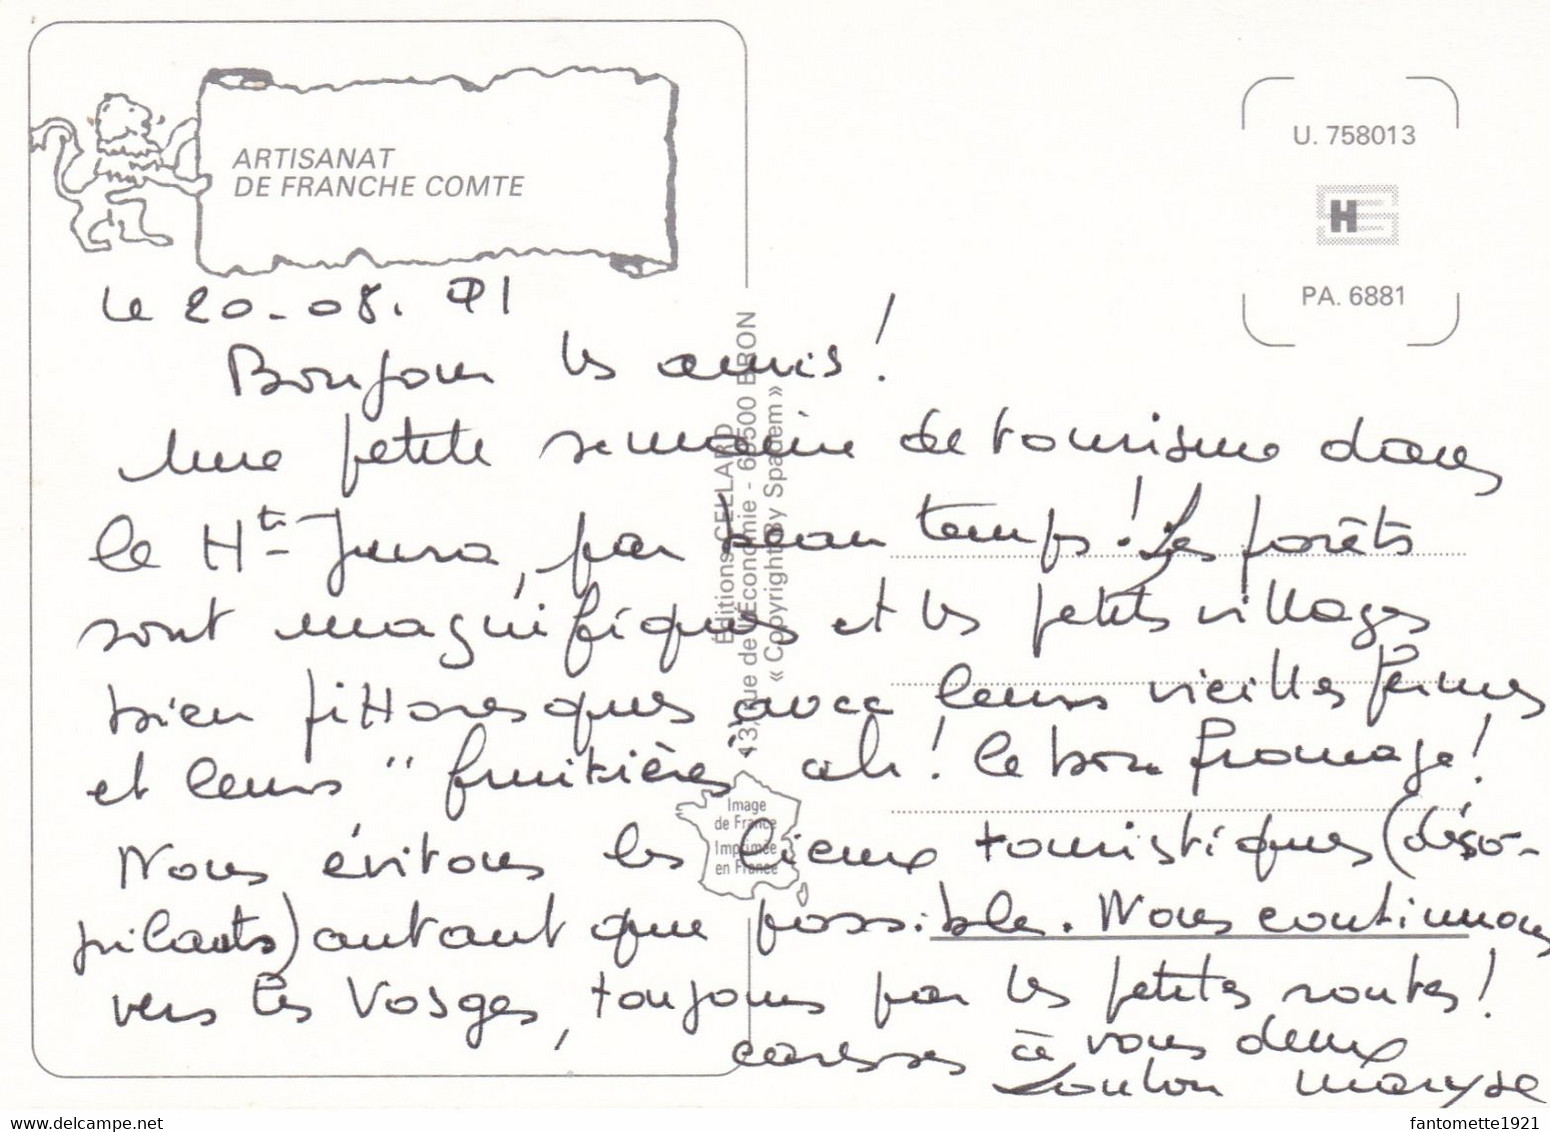 ARTISANAT
DE FRANCHE COMTE
U. 758013
H
PA. 6881
Le 20-08. 91
Bonjour les amis !
Une petite semaine de tourisme dans
le Ht-Jura, par beau temps ! Les forêts
sont magnifiques et les petits villages
bien pittoresques avec leurs vieilles fermes
et leurs " fruitières " ah ! le bon fromage !
Nous évitons les lieux touristiques (déso-
pilants) autant que possible. Nous continuons
vers les Vosges, toujours par les petites routes !
caresses à vous deux
Loulou Maryse
Éditions CELLARD
13, rue de l'Économie - 69500 BRON
« Copyright By Spadem »
Image
de France
Imprimée
en France
www.delcampe.net
fantomette1921